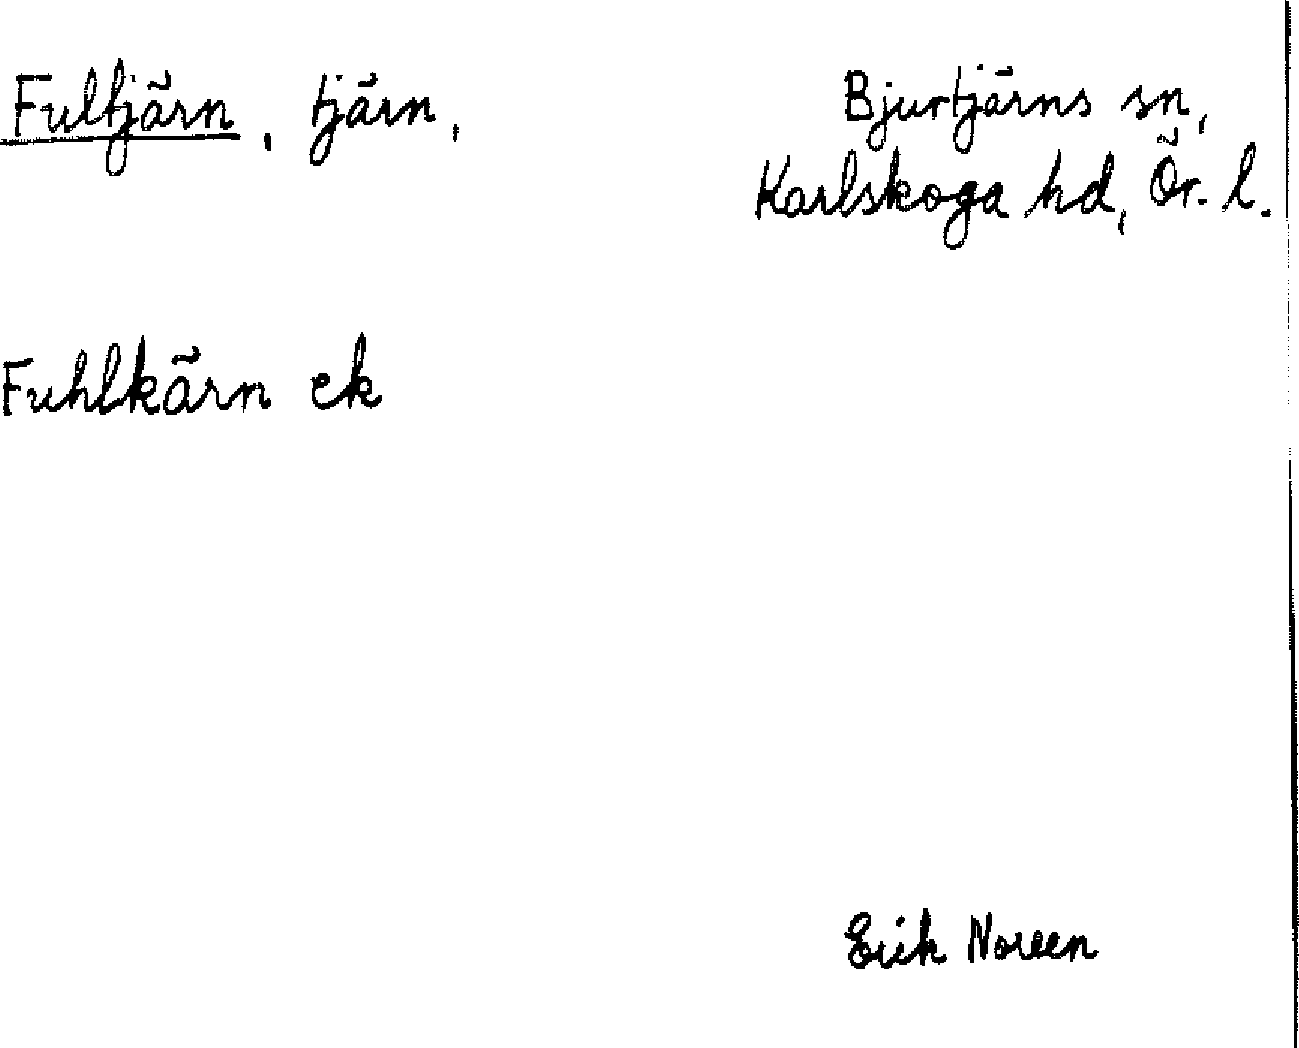 Fultjärn, tjärn,
Bjurtjärns sn,
Karlskoga hd, Ör. l.
Fuhlkärn ek
Erik Noreen